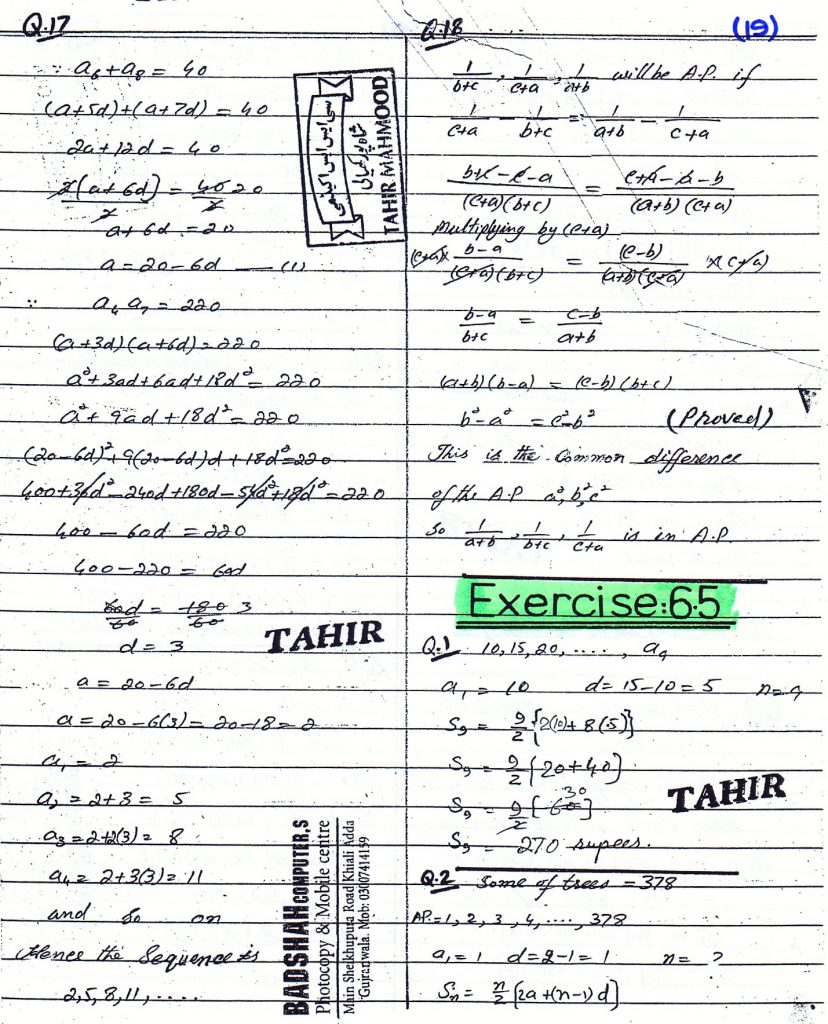 Q.17
∵ a₆+a₈ = 40
(a+5d)+(a+7d) = 40
2a+12d = 40
2(a+6d)/2 = 40/2 20
a+6d = 20
a = 20-6d — (1)
∵ a₄ a₇ = 220
(a+3d)(a+6d) = 220
a²+3ad+6ad+18d² = 220
a²+9ad+18d² = 220
(20-6d)²+9(20-6d)d+18d²=220
400+36d²-240d+180d-54d²+18d²=220
400-60d = 220
400-220 = 60d
60d/60 = 180/60 3
d = 3
a = 20-6d
a = 20-6(3) = 20-18 = 2
a₁ = 2
a₂ = 2+3 = 5
a₃ = 2+2(3) = 8
a₄ = 2+3(3) = 11
and so on
Hence the Sequence is
2,5,8,11,.....
سی ایس ایس اکیڈمی
TAHIR MAHMOOD
TAHIR
BADSHAH COMPUTER,S
Photocopy & Mobile centre
Main Sheikhupura Road Khiali Adda
Gujranwala. Mob: 03007414159
(19)
Q.18
1/(b+c), 1/(c+a), 1/(a+b) will be A.P. if
1/(c+a) - 1/(b+c) = 1/(a+b) - 1/(c+a)
(b+c-c-a)/((c+a)(b+c)) = (c+a-a-b)/((a+b)(c+a))
multiplying by (c+a)
(c+a)× (b-a)/((c+a)(b+c)) = (c-b)/((a+b)(c+a)) ×(c+a)
(b-a)/(b+c) = (c-b)/(a+b)
(a+b)(b-a) = (c-b)(b+c)
b²-a² = c²-b² (Proved)
This is the Common difference
of the A.P a²,b²,c²
So 1/(a+b), 1/(b+c), 1/(c+a) is in A.P.
Exercise:6.5
Q.1 10,15,20,....., a₉
a₁ = 10 d = 15-10 = 5 n=9
S₉ = 9/2{2(10)+8(5)}
S₉ = 9/2[20+40]
S₉ = 9/2[60] 30
S₉ = 270 rupees.
TAHIR
Q.2 Some of trees = 378
AP.=1,2,3,4,....,378
a₁=1 d=2-1=1 n=?
Sₙ= n/2[2a+(n-1)d]